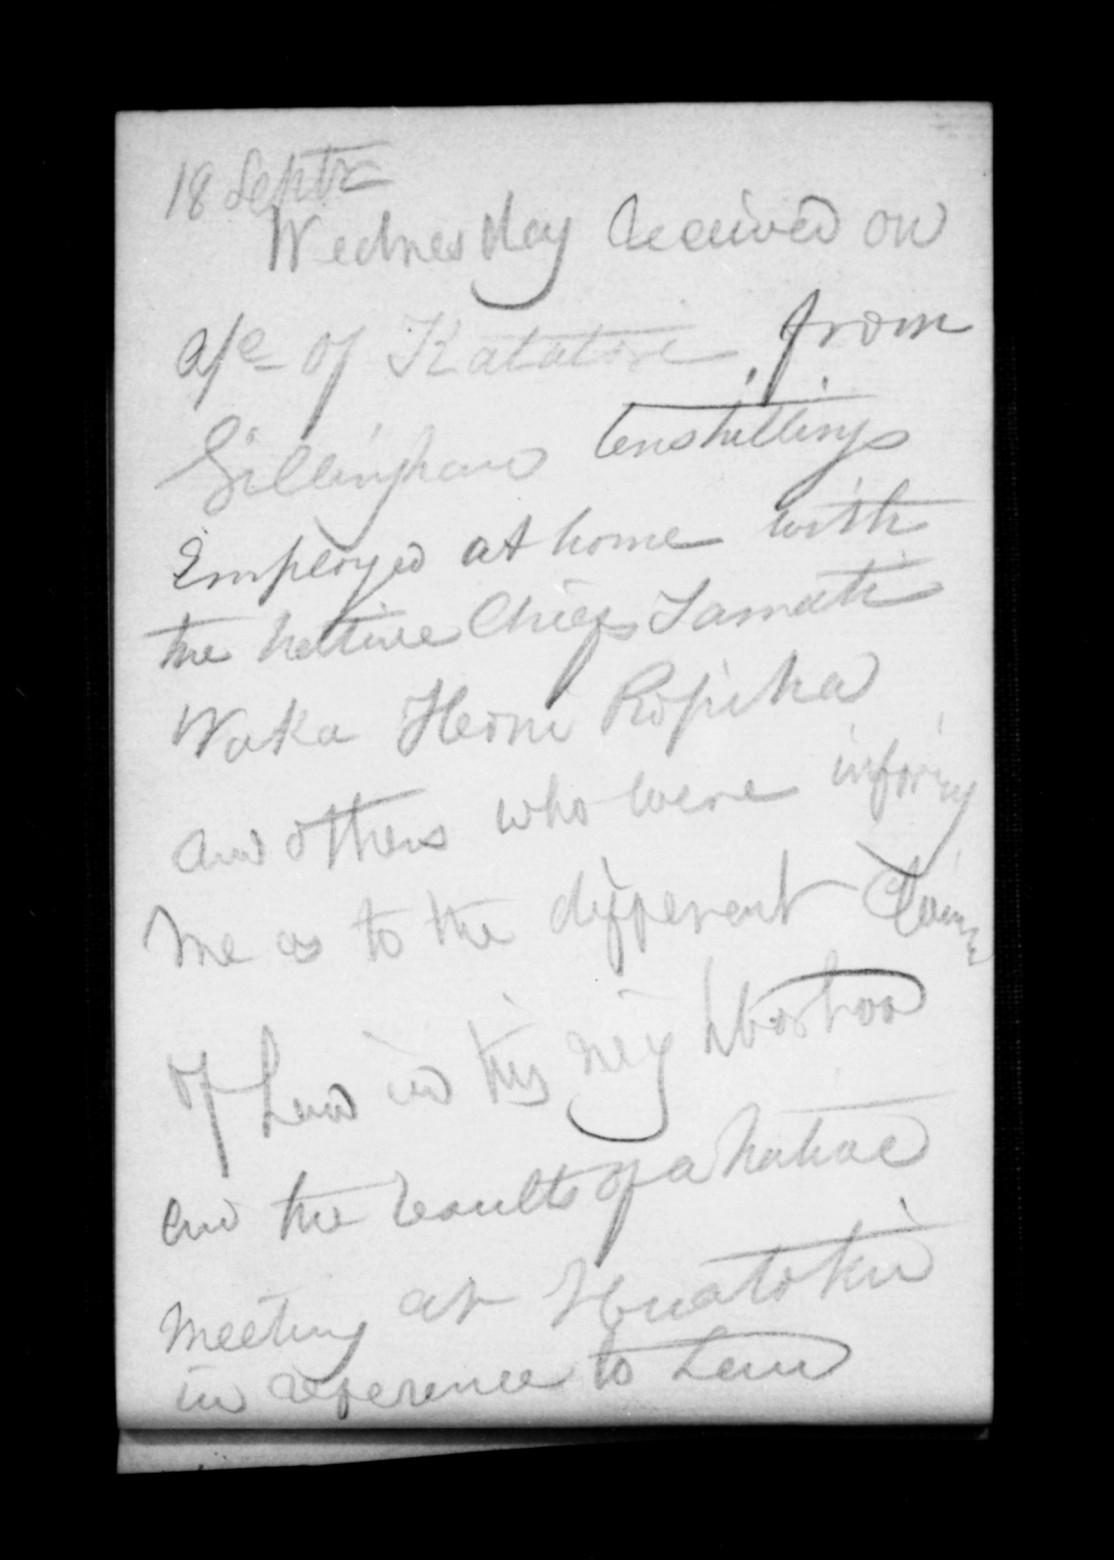 18 Septr
Wednesday received on
a/c of Katatore, from
Gillingham ten shillings
Employed at home with
the native Chiefs Tamati
Waka Heoni Ropiha
and others who were inforing
me as to the different Claims
of Land in this neighborhood
and the results of a native
meeting at Huatoki
in reference to Land